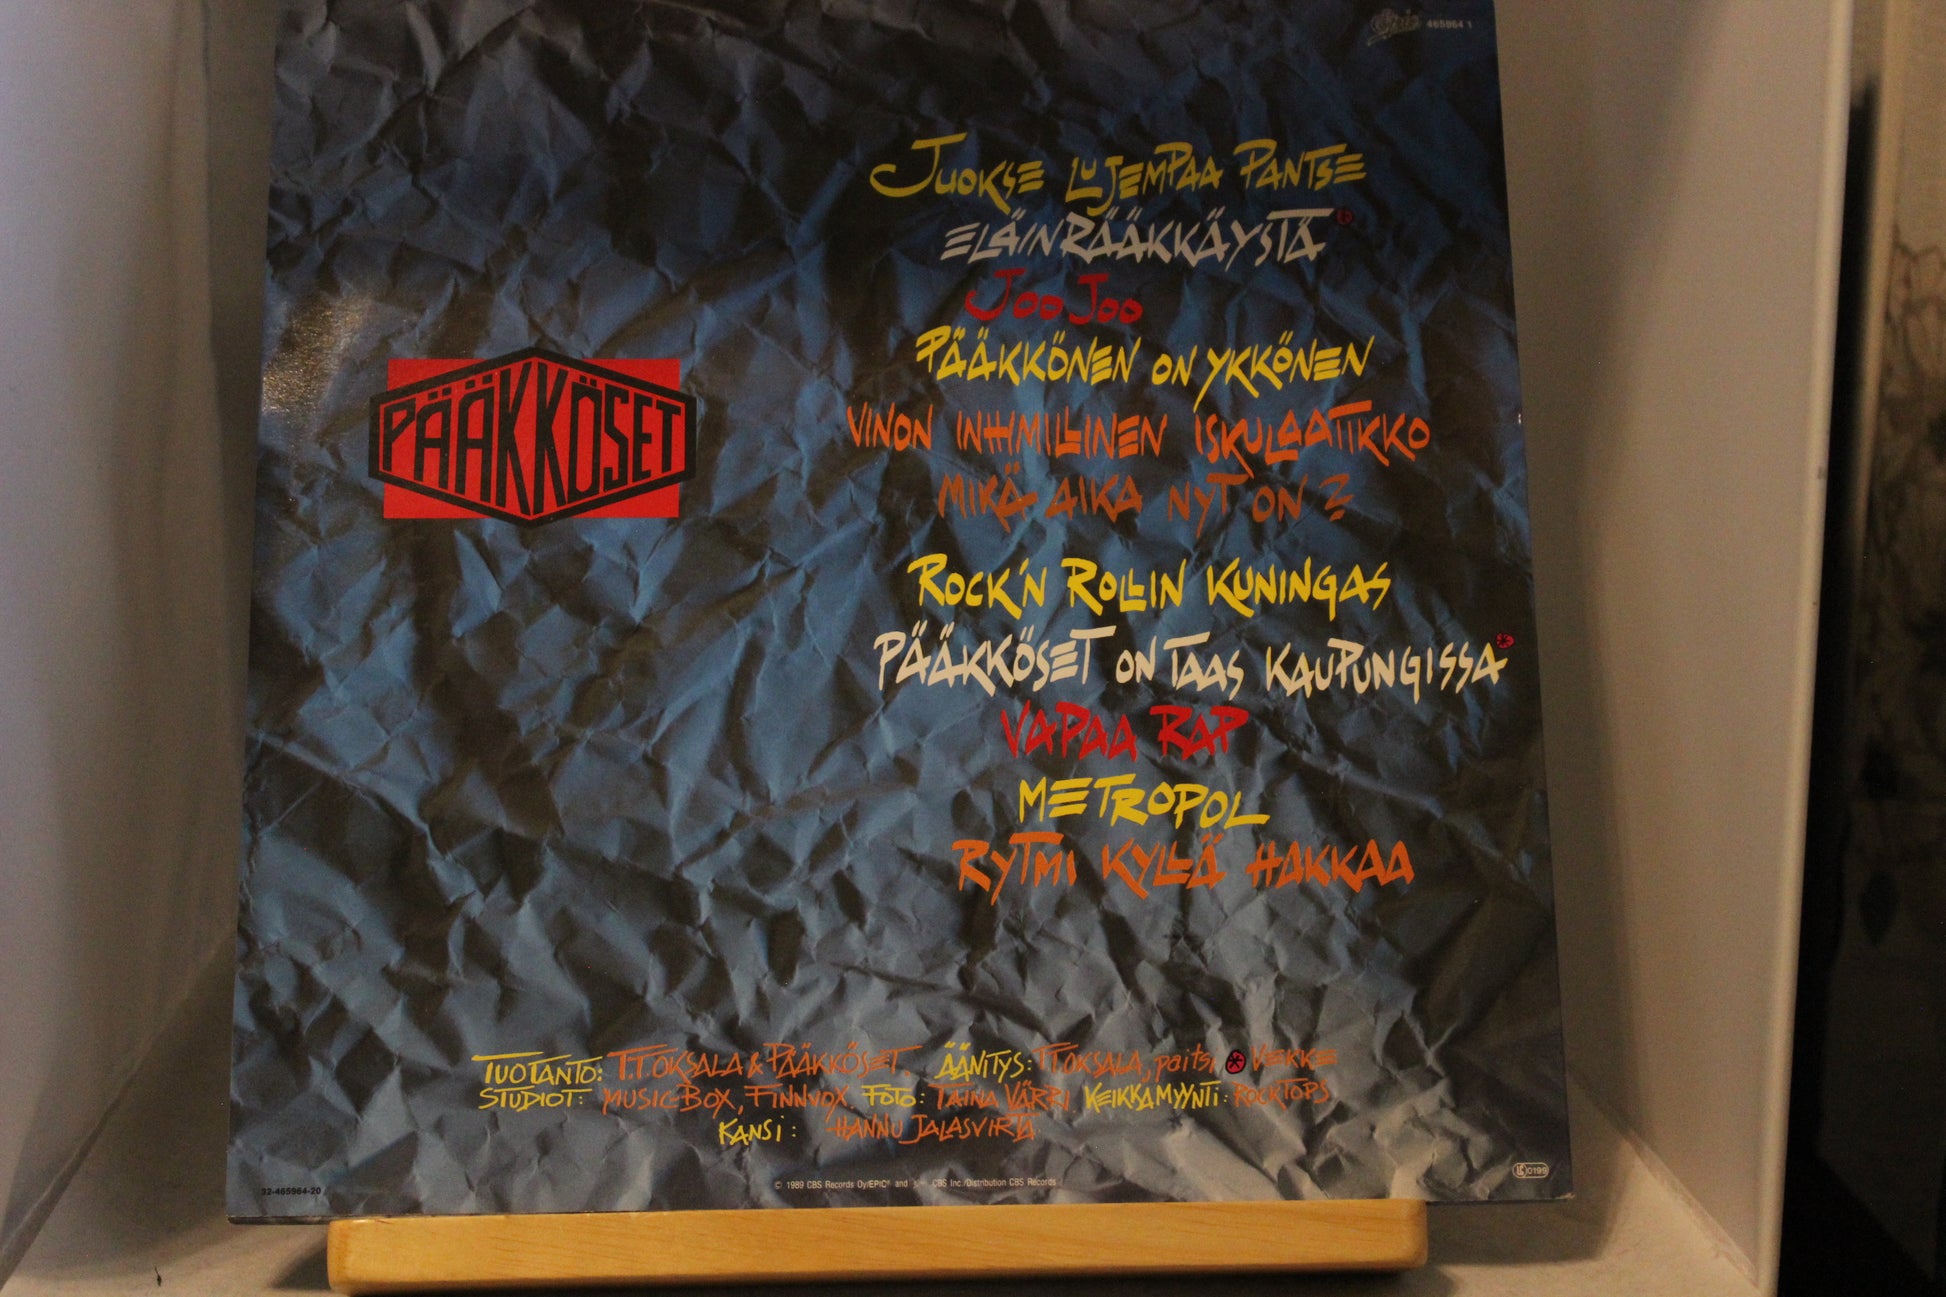 Epic 465964 1
JUOKSE LUJEMPAA PANTSE
ELÄINRÄÄKKÄYSTÄ*
JOO JOO
PÄÄKKÖNEN ON YKKÖNEN
VINON INHMILLINEN ISKULAATIKKO
MIKÄ AIKA NYT ON ?
PÄÄKKÖSET
ROCK'N ROLLIN KUNINGAS
PÄÄKKÖSET ON TAAS KAUPUNGISSA*
VAPAA RAP
METROPOL
RYTMI KYLLÄ HAKKAA
TUOTANTO: T.T.OKSALA & PÄÄKKÖSET. ÄÄNITYS: TT.OKSALA, paitsi * VEKKE
STUDIOT: MUSIC-BOX, FINNVOX FOTO: TAINA VÄRRI KEIKKAMYYNTI: ROCKTOPS
KANSI: HANNU JALASVIRTA
32-465964-20
© 1989 CBS Records Oy/EPIC® and CBS Inc./Distribution CBS Records
LC 0199